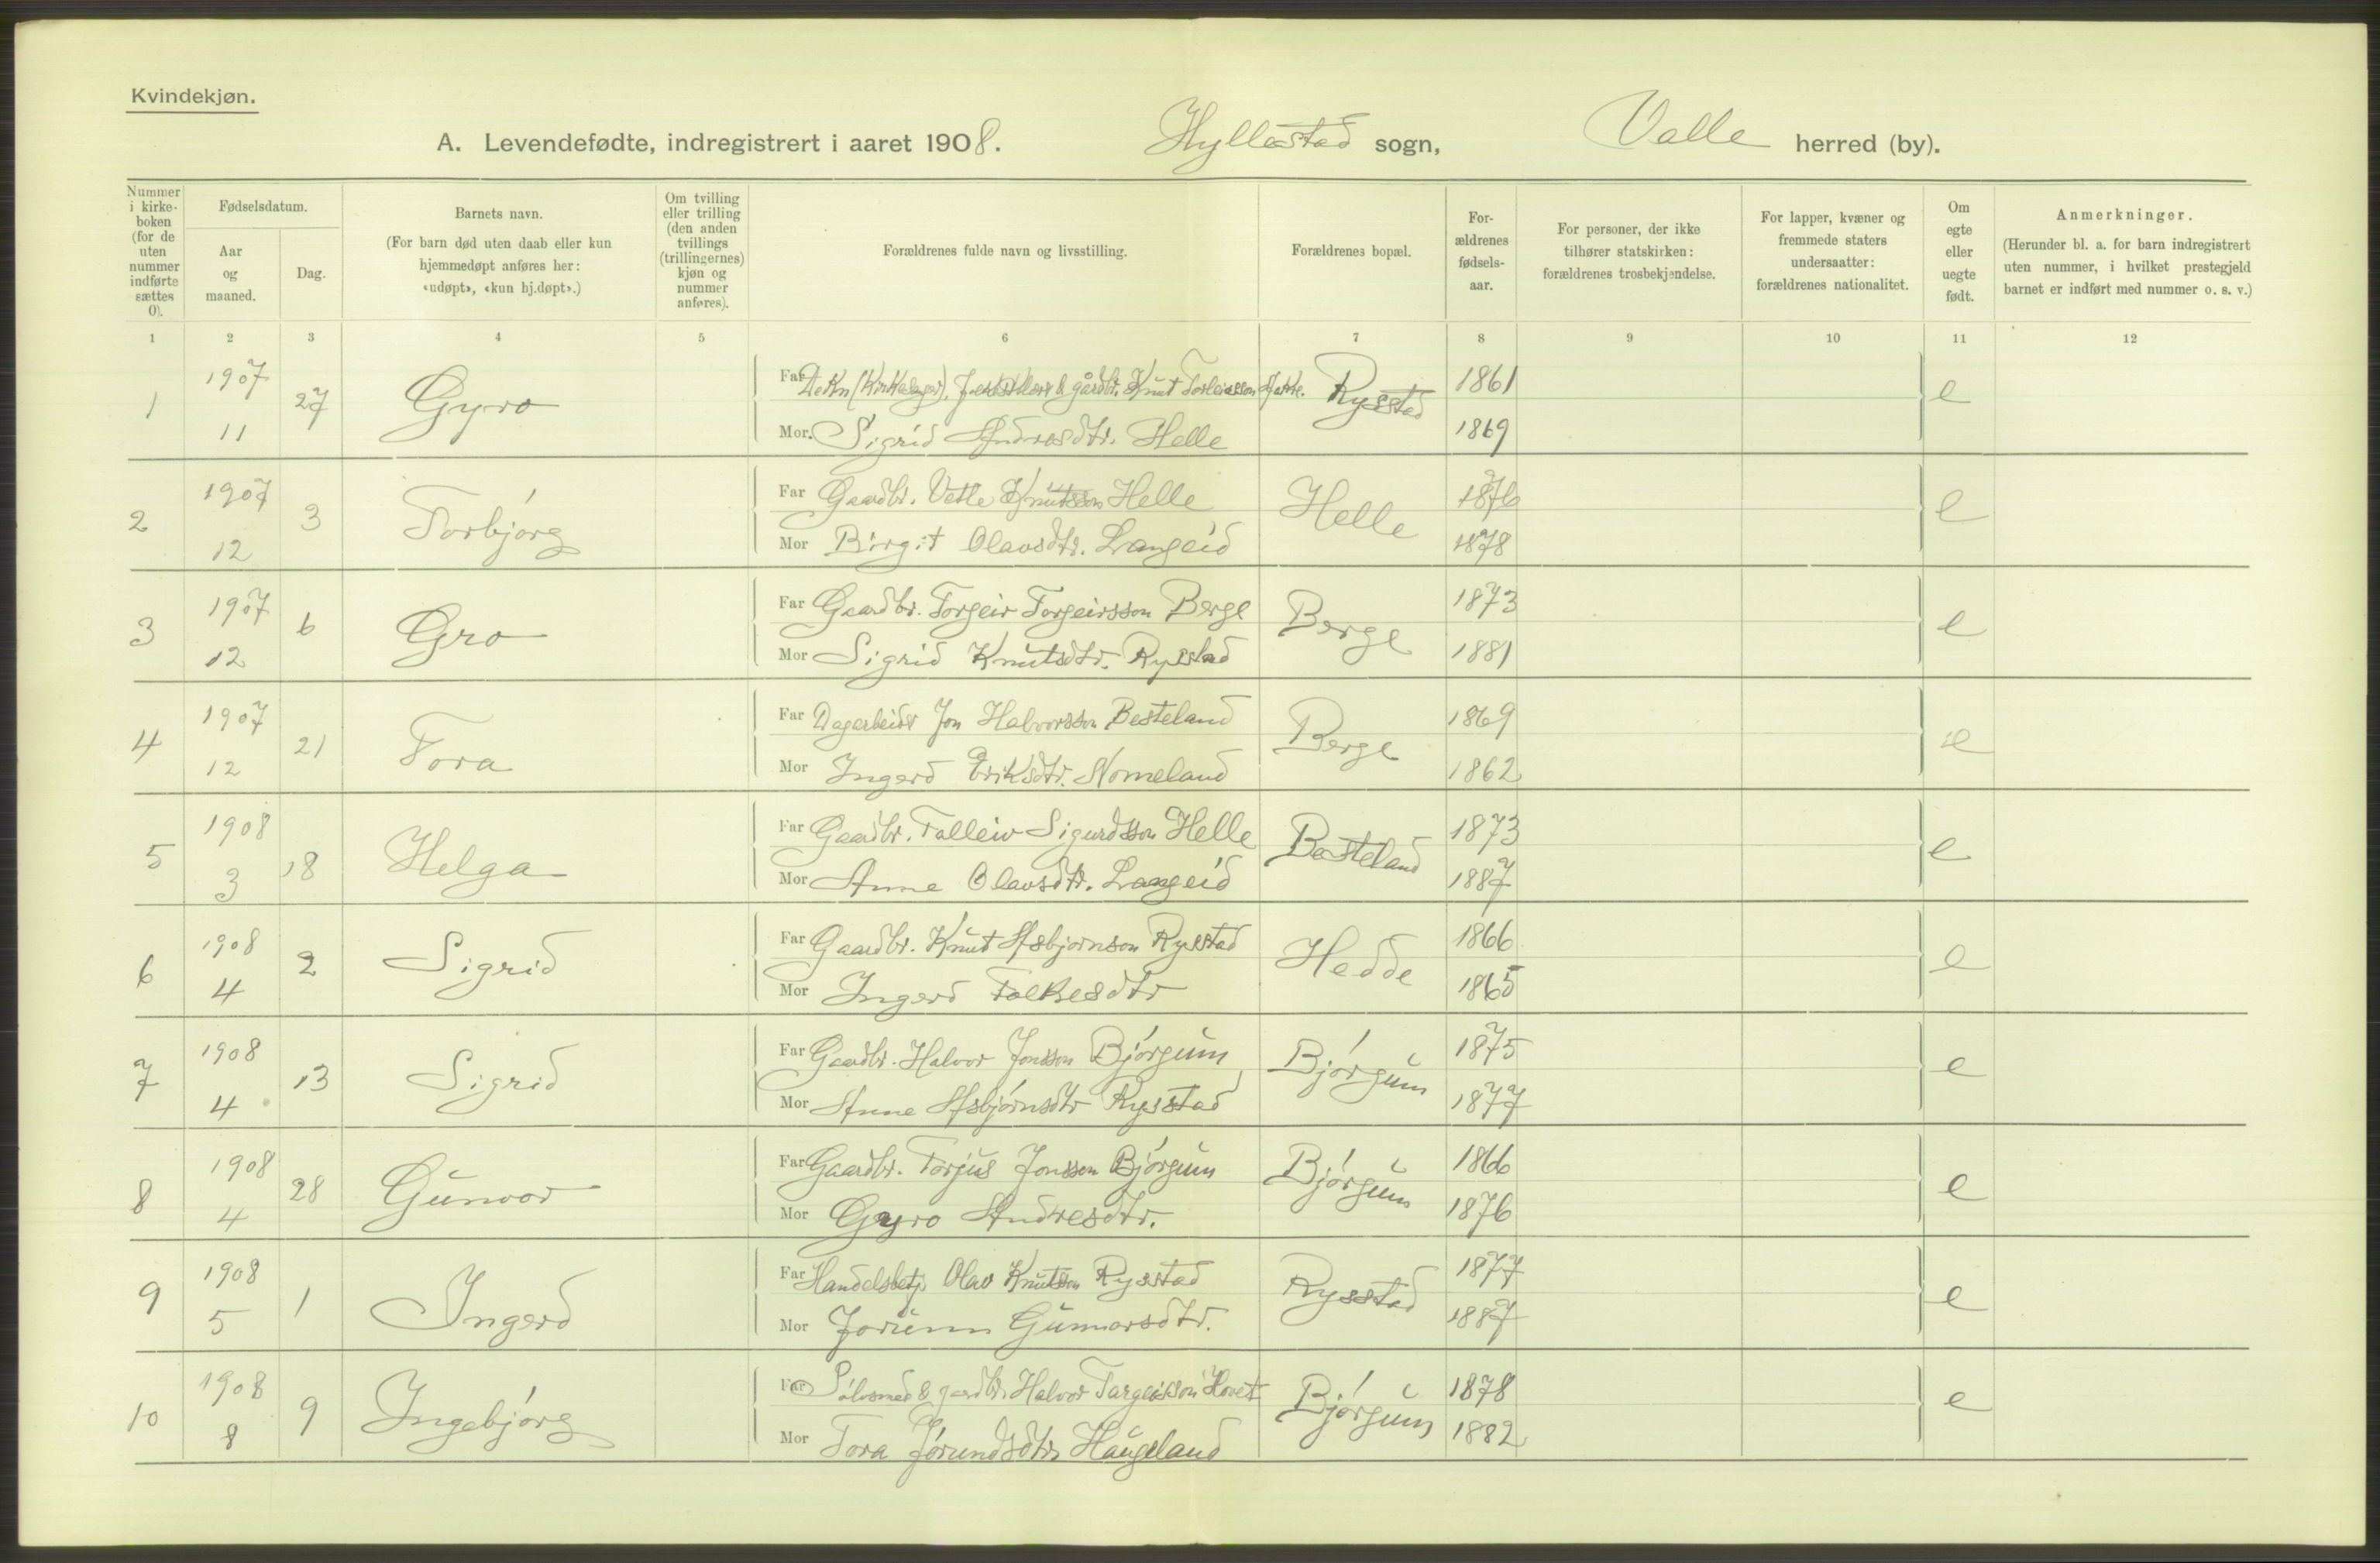 Kvindekjøn.
A. Levendefødte, indregistrert i aaret 1908. Hyllestad sogn, Valle herred (by).
Nummer i kirkeboken (for de uten nummer indførte sættes 0).
Fødselsdatum.
Aar og maaned.
Dag.
Barnets navn.
(For barn død uten daab eller kun hjemmedøpt anføres her: «udøpt», «kun hj.døpt».)
Om tvilling eller trilling (den anden tvillings (trillingernes) kjøn og nummer anføres).
Forældrenes fulde navn og livsstilling.
Forældrenes bopæl.
Forældrenes fødselsaar.
For personer, der ikke tilhører statskirken: forældrenes trosbekjendelse.
For lapper, kvæner og fremmede staters undersaatter: forældrenes nationalitet.
Om egte eller uegte født.
Anmerkninger.
(Herunder bl. a. for barn indregistrert uten nummer, i hvilket prestegjeld barnet er indført med nummer o. s. v.)
1 2 3 4 5 6 7 8 9 10 11 12
1 1907 11 27 Gyro Far (Kirkesanger), & gårdbr. Knut Rysstad 1861 e
Mor. Sigrid Andresdtr. Helle 1869
2 1907 12 3 Torbjórg Far Gaardbr. Vetle Knutsson Helle Helle 1876 e
Mor Birgit Olavsdtr. Langeid 1878
3 1907 12 6 Gro Far Gaardbr. Torgeir Torgeirsson Berge Berge 1873 e
Mor Sigrid Knutsdtr. Rysstad 1881
4 1907 12 21 Tora Far Dagarbeider Jon Halvorsson Besteland Berge 1869 e
Mor Ingerd Eriksdtr. Nomeland 1862
5 1908 3 18 Helga Far Gaardbr. Talleiv Sigurdsson Helle Besteland 1873 e
Mor Anne Olavsdtr. Langeid 1887
6 1908 4 2 Sigrid Far Gaardbr. Knut Asbjornson Rysstad Hedde 1866 e
Mor Ingerd Folkesdtr 1865
7 1908 4 13 Sigrid Far Gaardbr. Halvor Jonsson Bjórgum Bjórgum 1875 e
Mor Anne Asbjórnsdtr Rysstad 1877
8 1908 4 28 Gunvor Far Gaardbr. Torjus Jonsson Bjórgum Bjórgum 1866 e
Mor Gyro Andresdtr. 1876
9 1908 5 1 Ingerd Far Handelsbetj. Olav Knutson Rysstad Rysstad 1877 e
Mor Jorunn Gunnarsdtr. 1887
10 1908 8 9 Ingebjórg Far Sólvsmed & gardbr. Halvor Targeisson Hovet Bjórgum 1878 e
Mor Tora Jórundsdtr Haugeland 1882